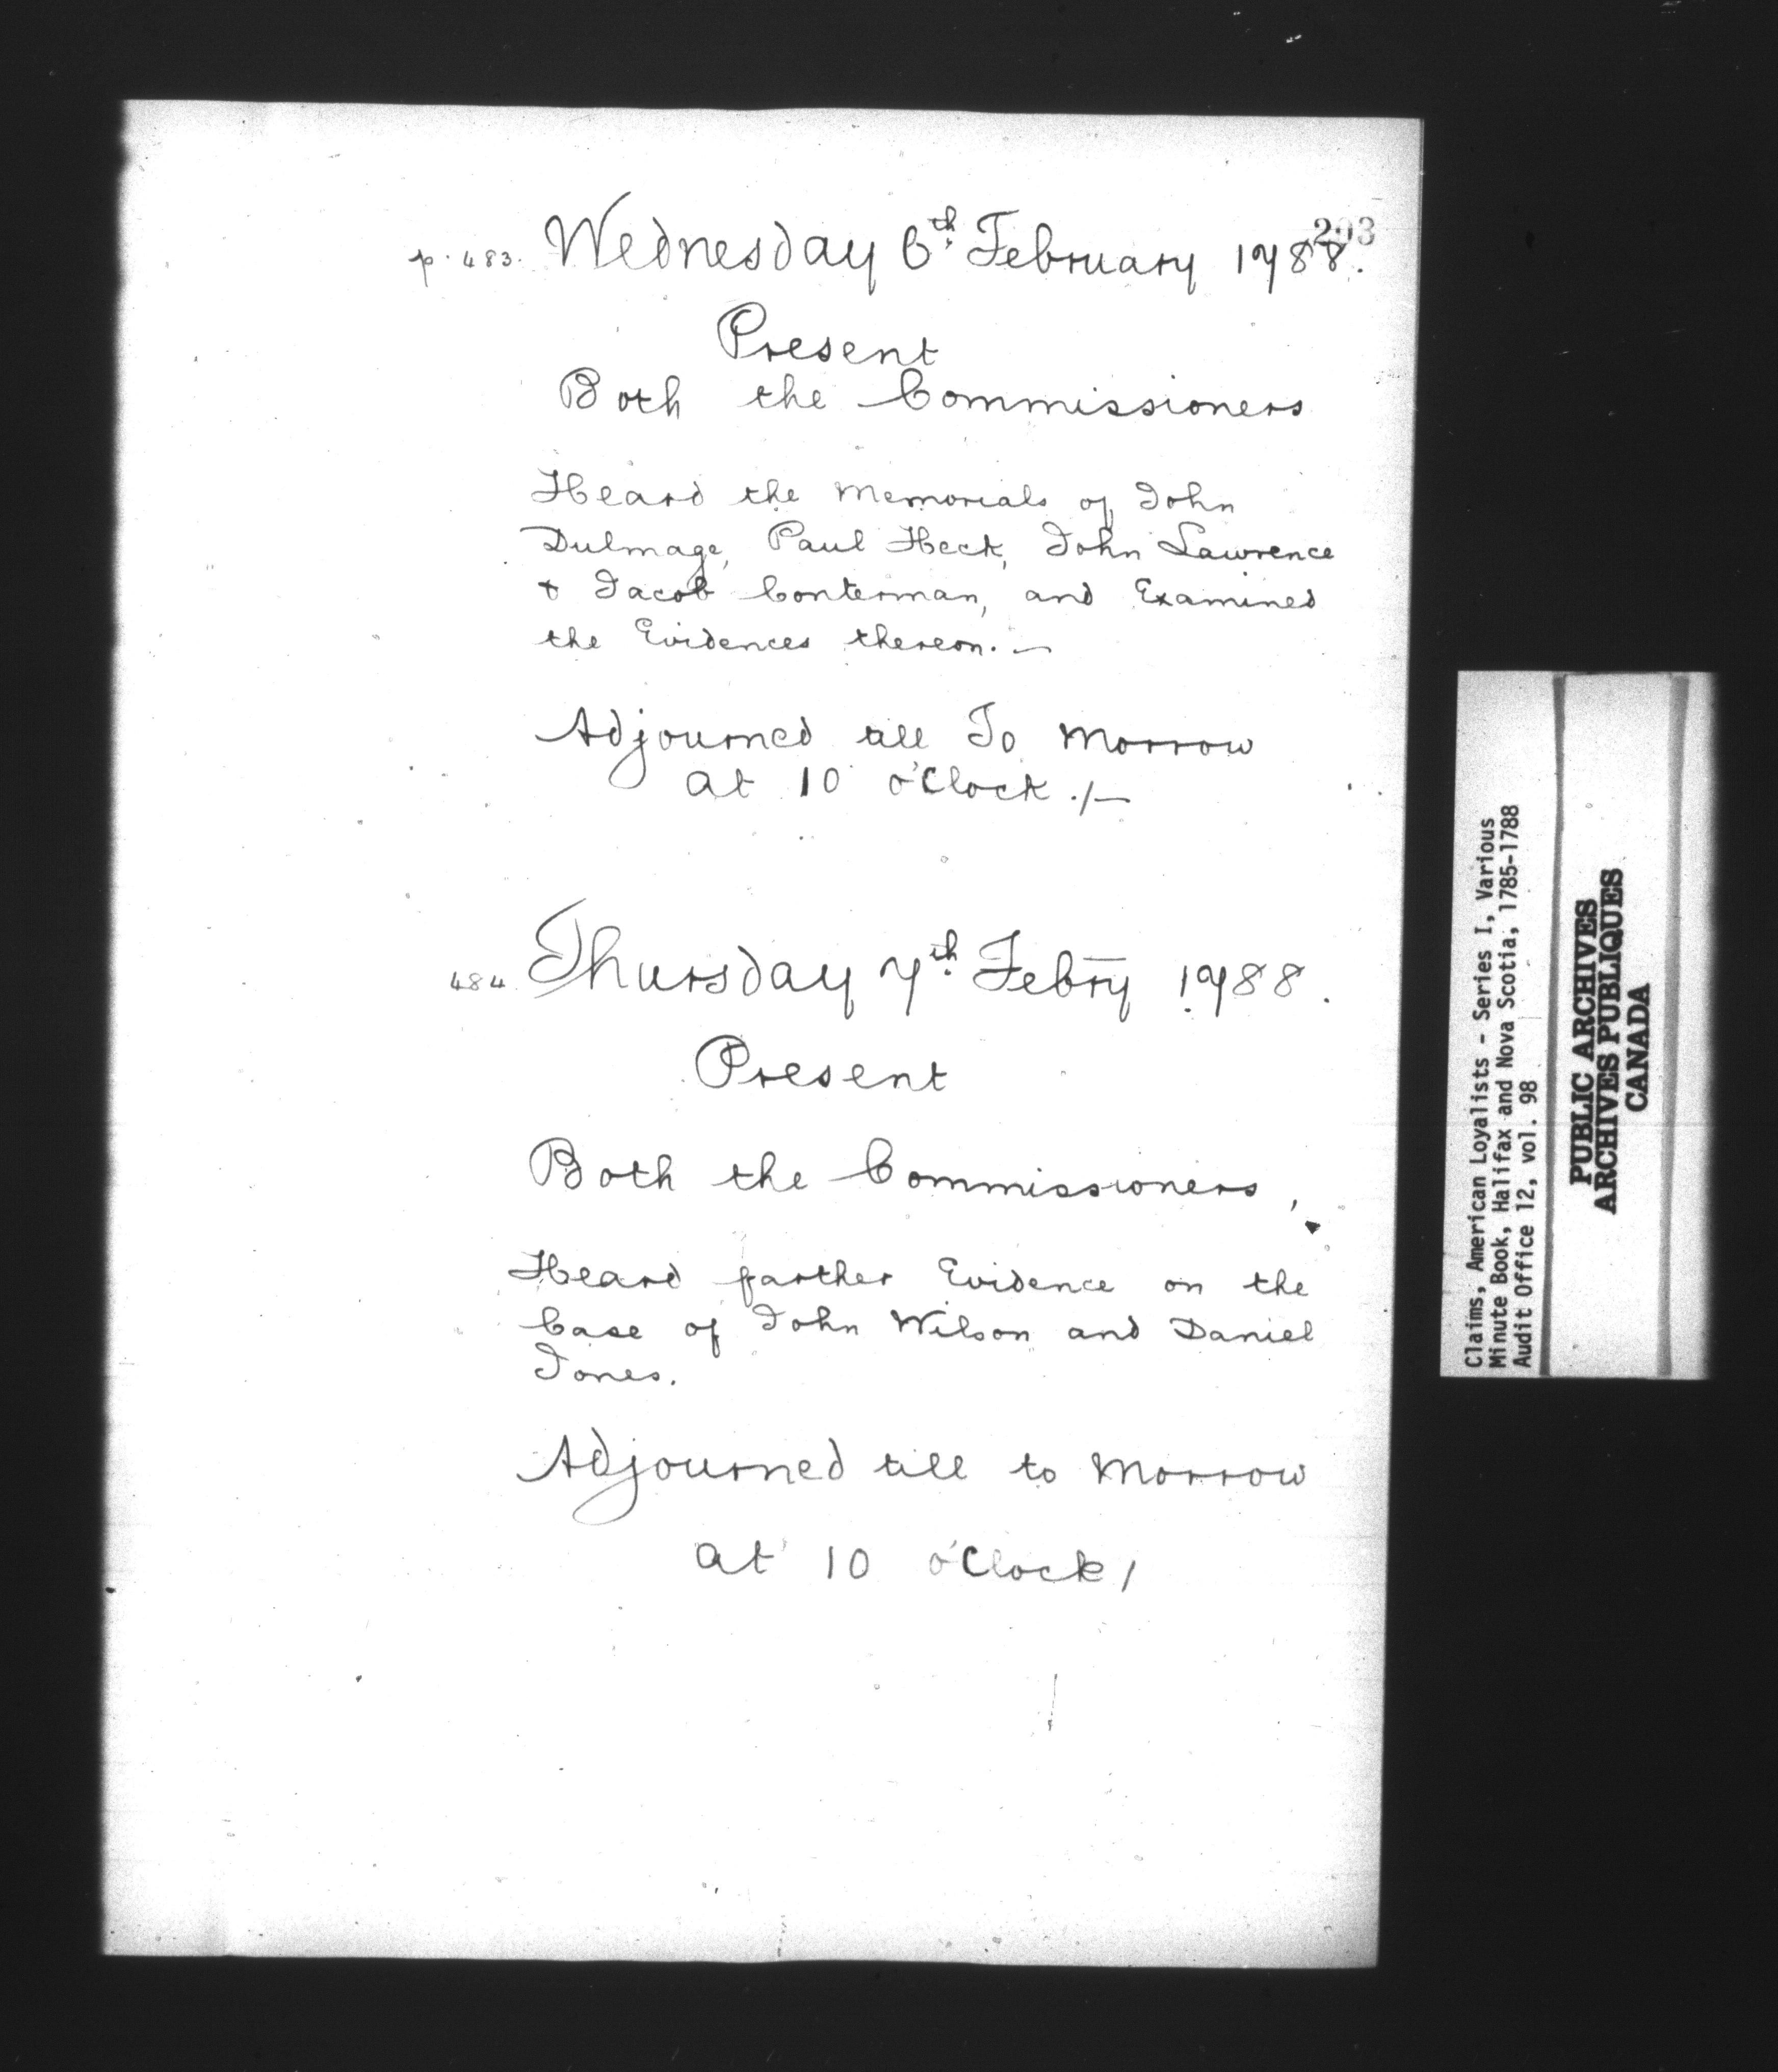 293
p. 483. Wednesday 6th. February 1788.
Present
Both the Commissioners
Heard the Memorials of John
Dulmage, Paul Heck, John Lawrence
+ Jacob Conterman, and Examined
the Evidences thereon. —
Adjourned till To Morrow
at 10 o'Clock ./—
484. Thursday 7th. Febry 1788.
Present
Both the Commissioners,
Heard farther Evidence on the
Case of John Wilson and Daniel
Jones.
Adjourned till to Morrow
at 10 o'Clock /
Claims, American Loyalists - Series I, Various
Minute Book, Halifax and Nova Scotia, 1785-1788
Audit Office 12, vol. 98
PUBLIC ARCHIVES
ARCHIVES PUBLIQUES
CANADA